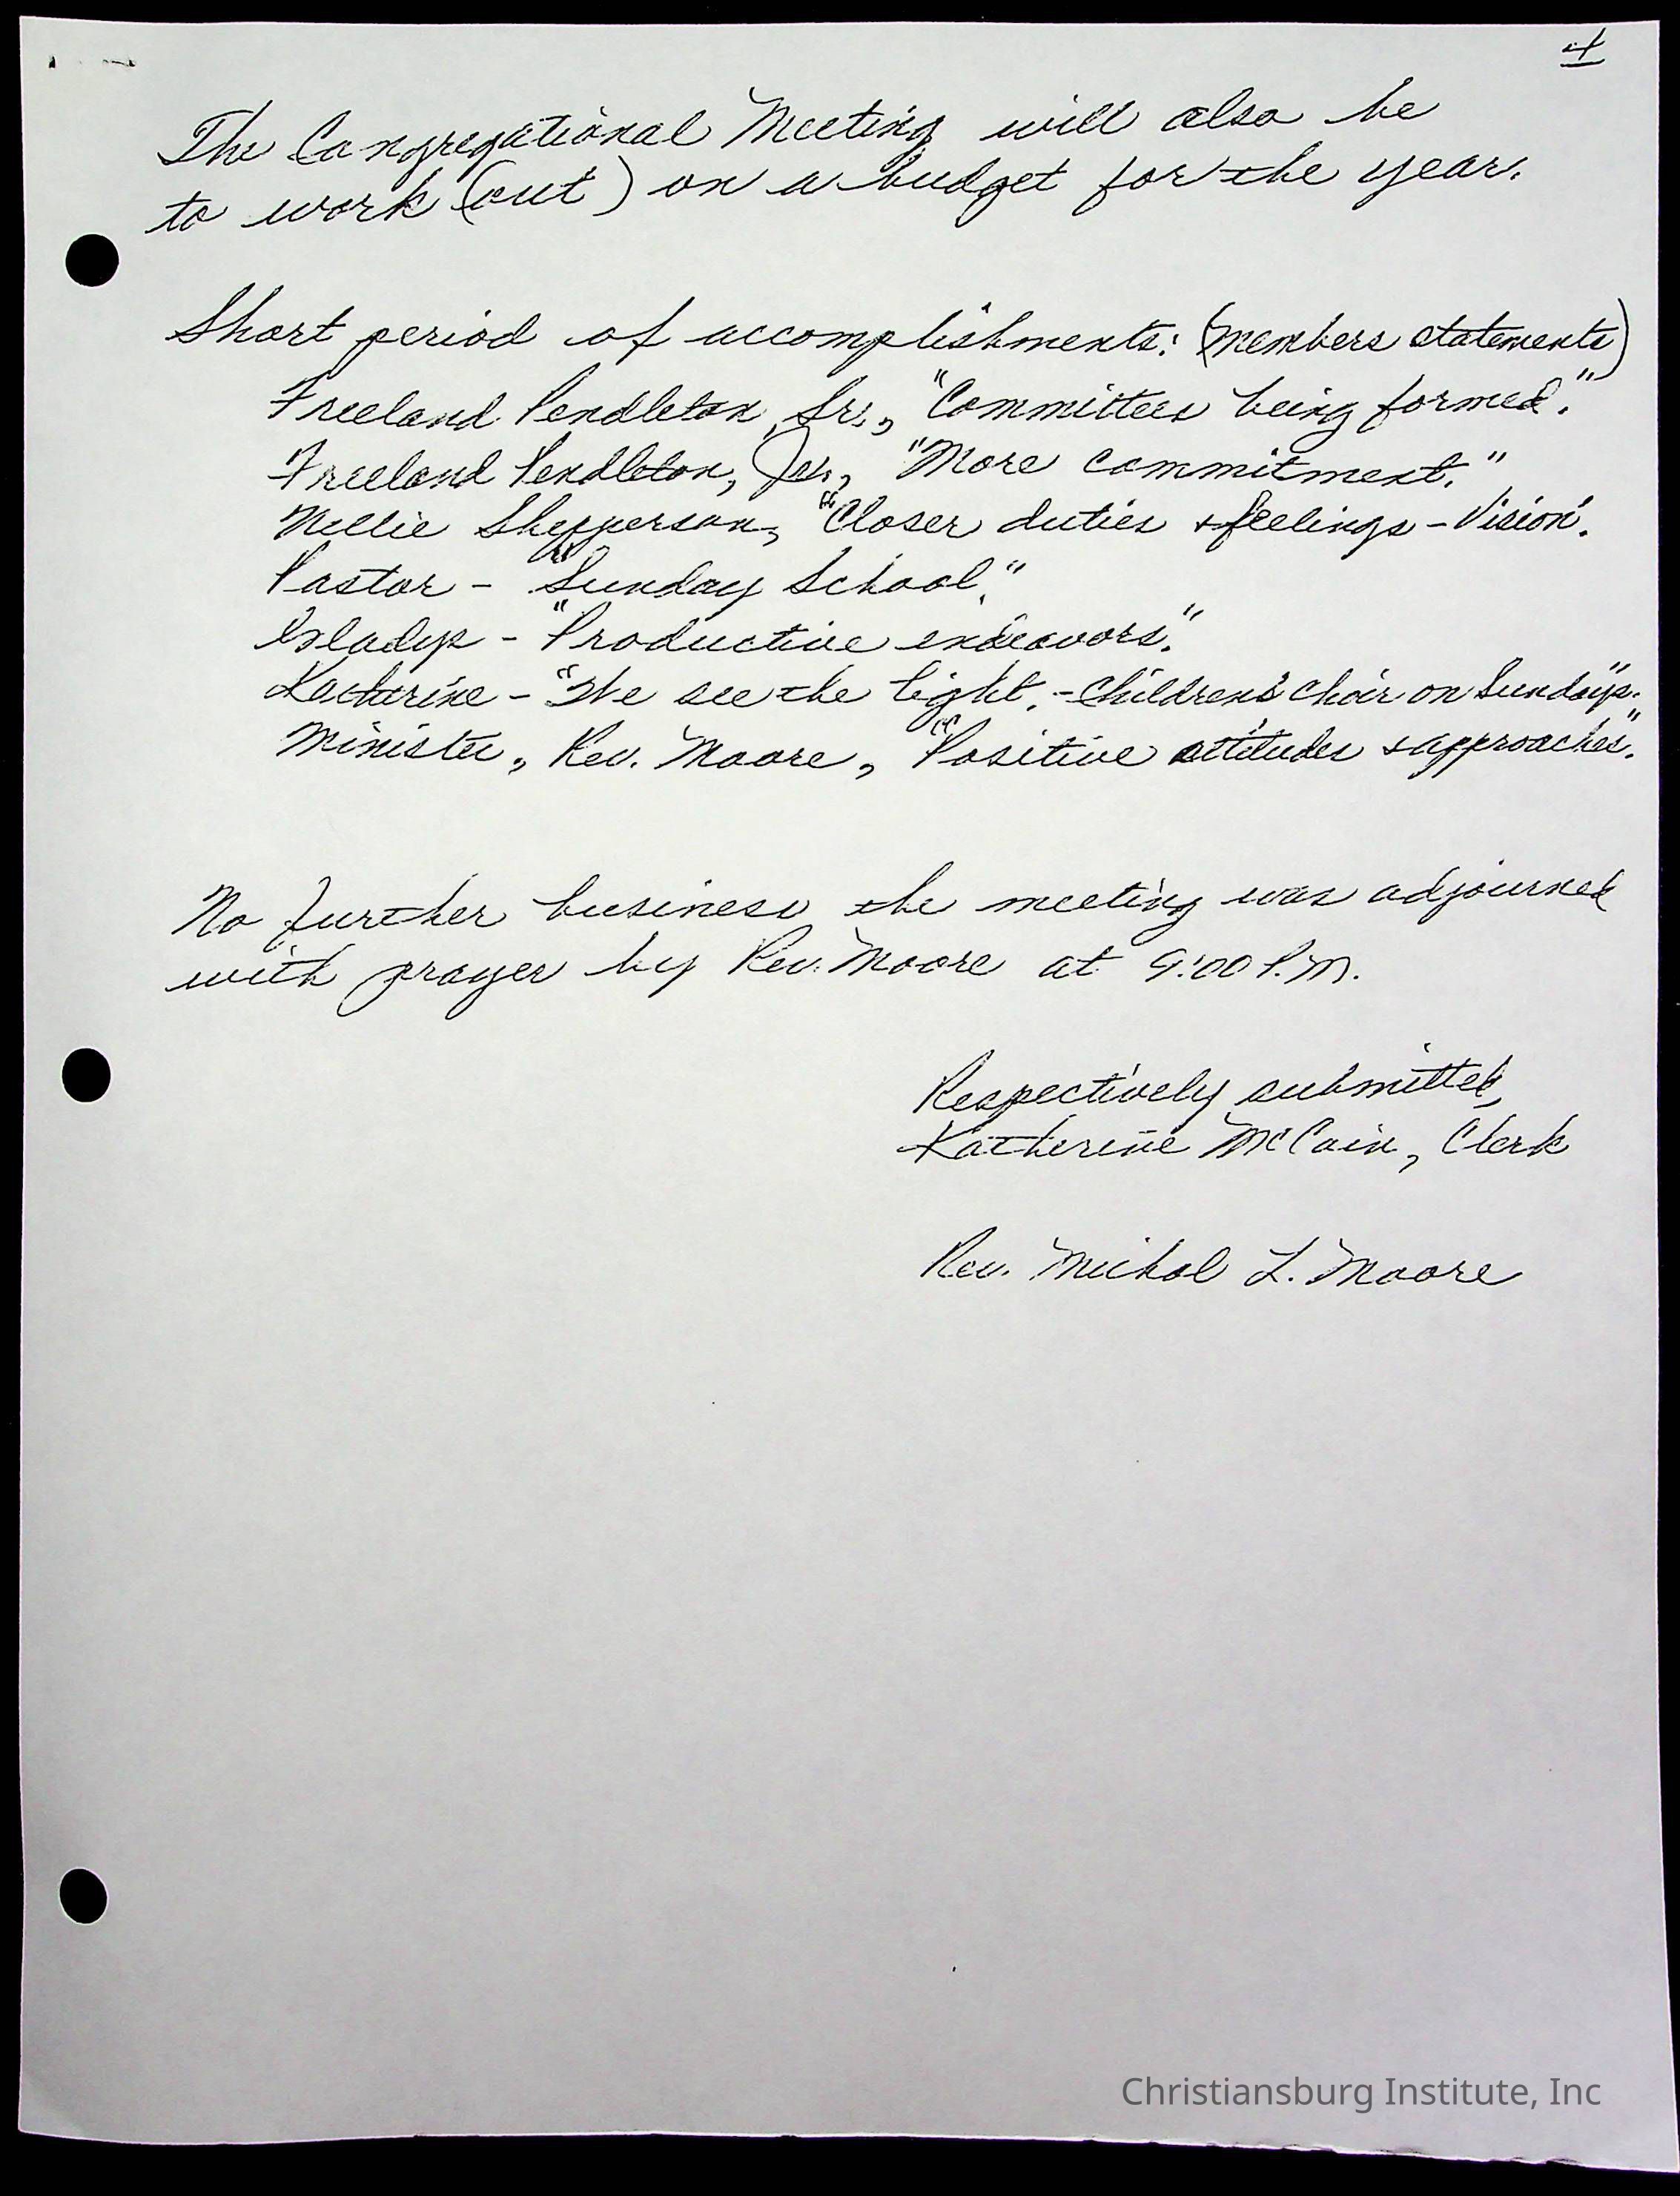 4
The Congregational Meeting will also be
to work (out) on a budget for the year.
Short period of accomplishments: (members statements)
Freeland Pendleton, Sr., "Committees being formed."
Freeland Pendleton, Jr., "More commitment."
Nellie Shepperson, "Closer duties & feelings - Vision.
Pastor - "Sunday School."
Gladys - "Productive endeavors."
Katherine - "We see the light. - Children's Choir on Sundays."
Minister, Rev. Moore, "Positive attitudes & approaches."
No further business the meeting was adjourned
with prayer by Rev. Moore at 9:00 P.M.
Respectively submitted,
Katherine McCain, Clerk
Rev. Michal L. Moore
Christiansburg Institute, Inc